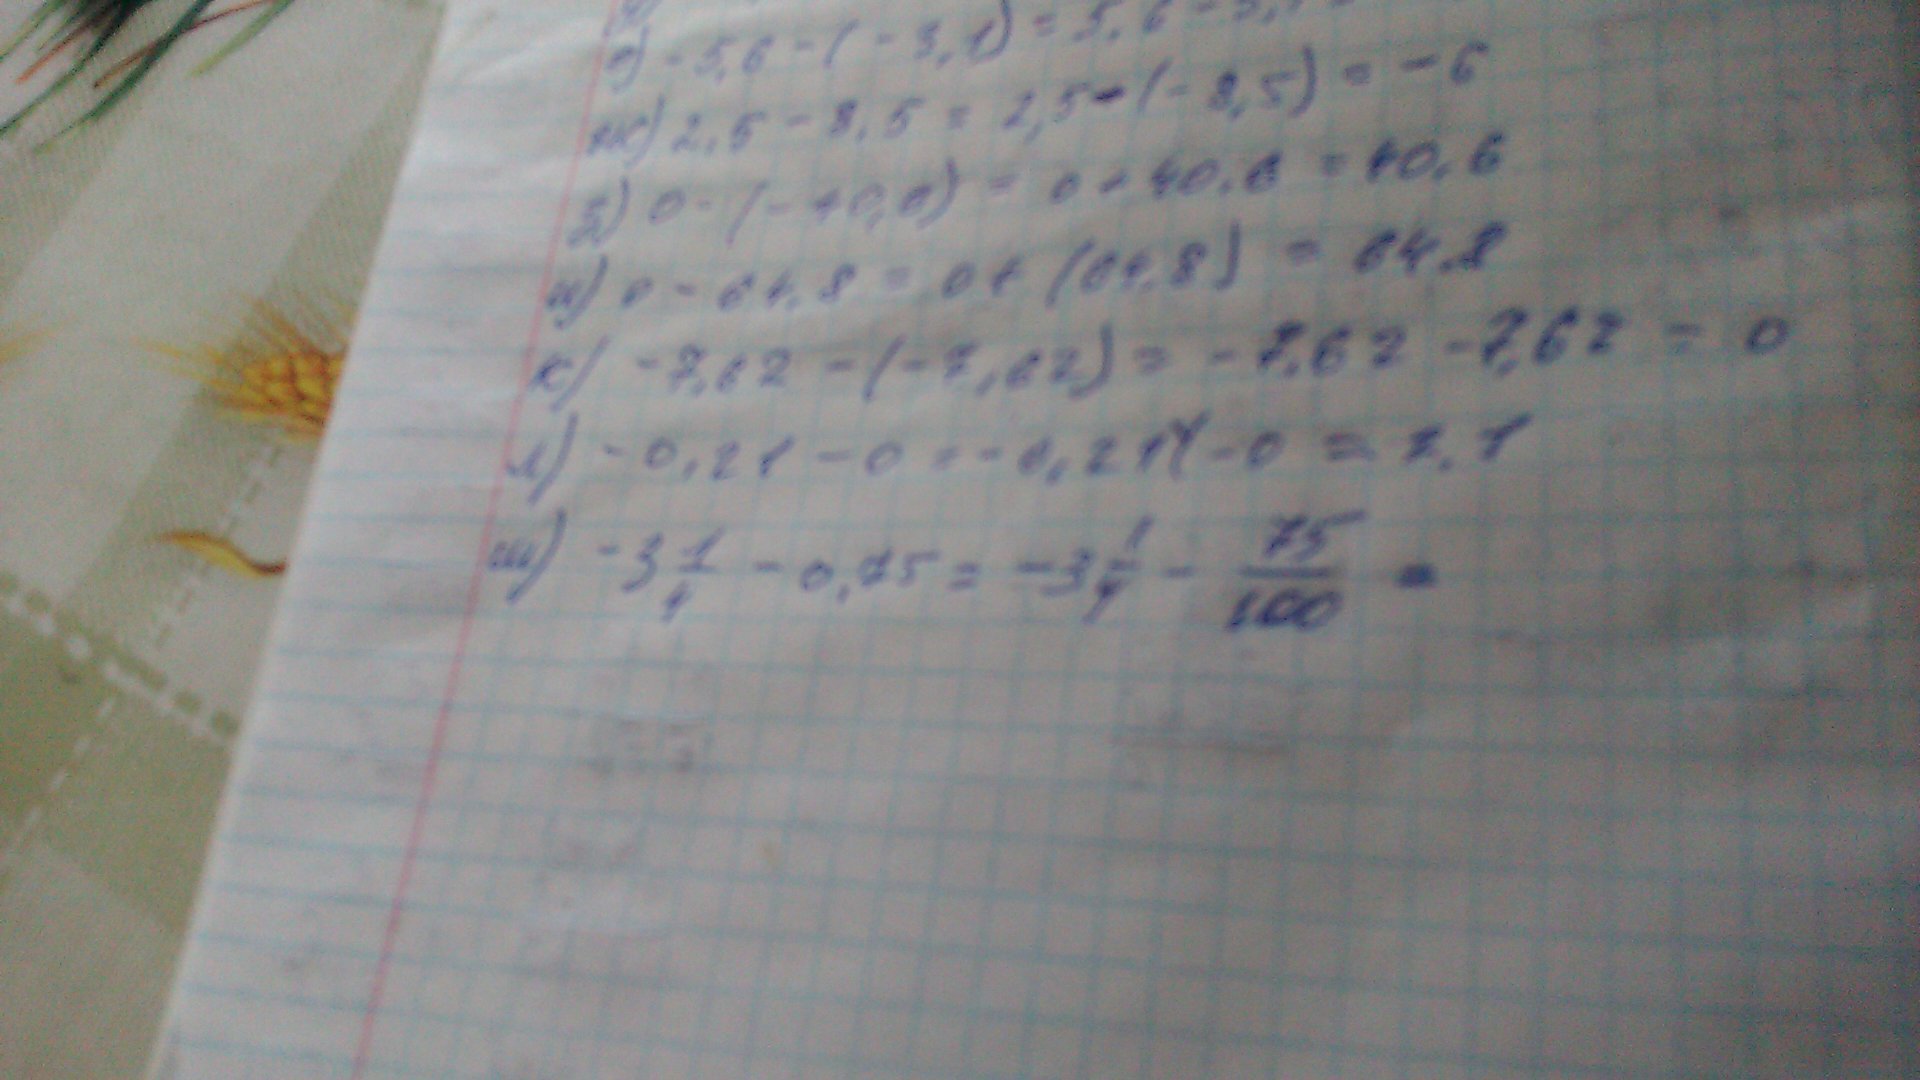 е) -5,6 - (-3,1) = 5,6 - 3,1 =
ж) 2,5 - 8,5 = 2,5 - (-8,5) = -6
з) 0 - (-40,6) = 0 + 40,6 = 40,6
и) 0 - 64,8 = 0 + (64,8) = 64,8
к) -7,62 - (-7,62) = -7,62 - 7,62 = 0
л) -0,21 - 0 = -0,21 (-0 = 2,1
м) -3 1/4 - 0,75 = -3 1/4 - 75/100 =